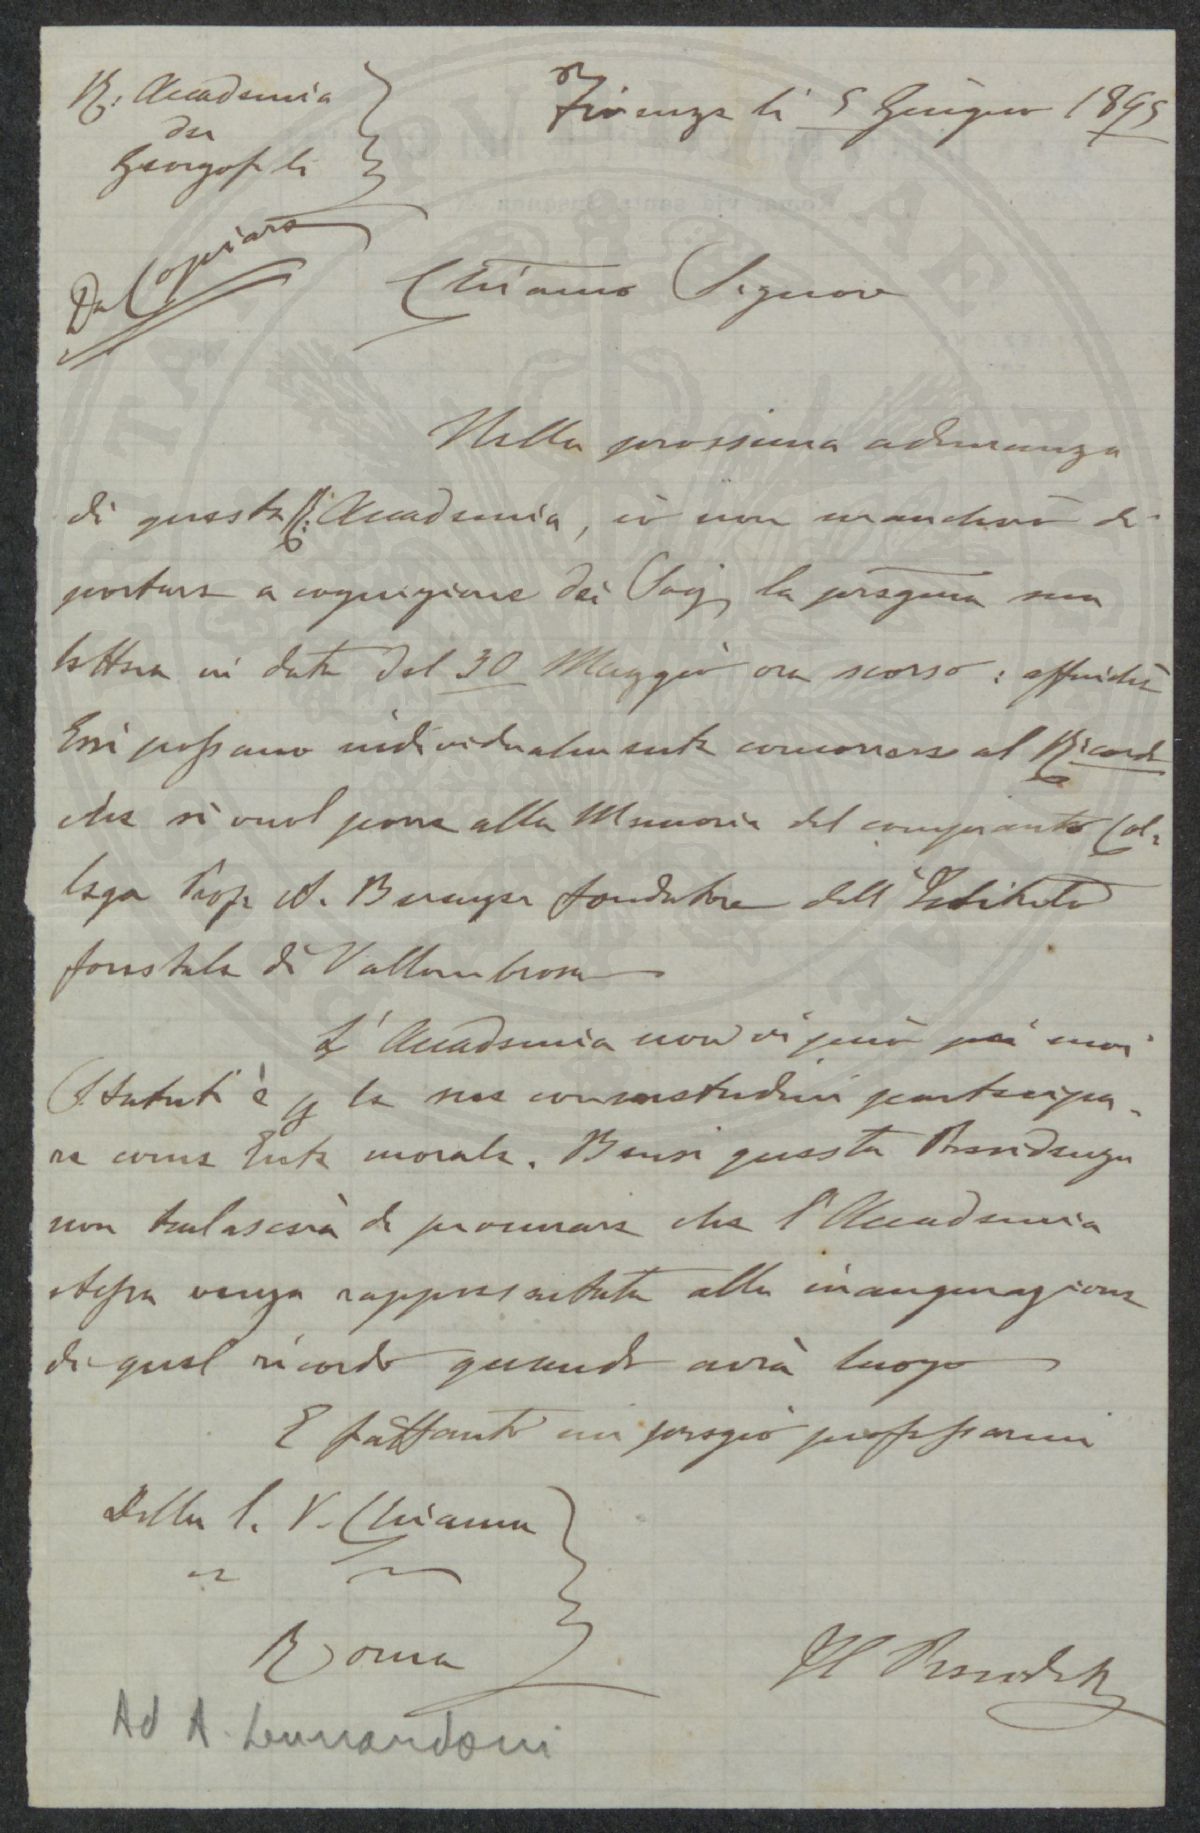 R. Accademia
dei
Georgofili
Firenze li 5 Giugno 1895
Da Copiare
Chiarmo Signore
Nella prossima adunanza
di questa R. Accademia, io non mancherò di
portare a cognizione dei Socj, la pregma sua
lettera in data del 30 Maggio ora scorso: affinchè
Essi possano individualmente concorrere al Ricordo
che si vuol porre alla Memoria del compianto Col=
lega Prof. A. Berenger fondatore dell'Istituto
forestale di Vallombrosa
L'Accademia non vi può pei suoi
Statuti e p le sue consuetudini partecipa=
re come Ente morale. Bensì questa Presidenza
non tralascerà di procurare che l'Accademia
stessa venga rappresentata alla inaugurazione
di quel ricordo quando avrà luogo
E frattanto mi pregio professarmi
Della S. V. Chiarma
Roma
Il Presidente
Ad A.